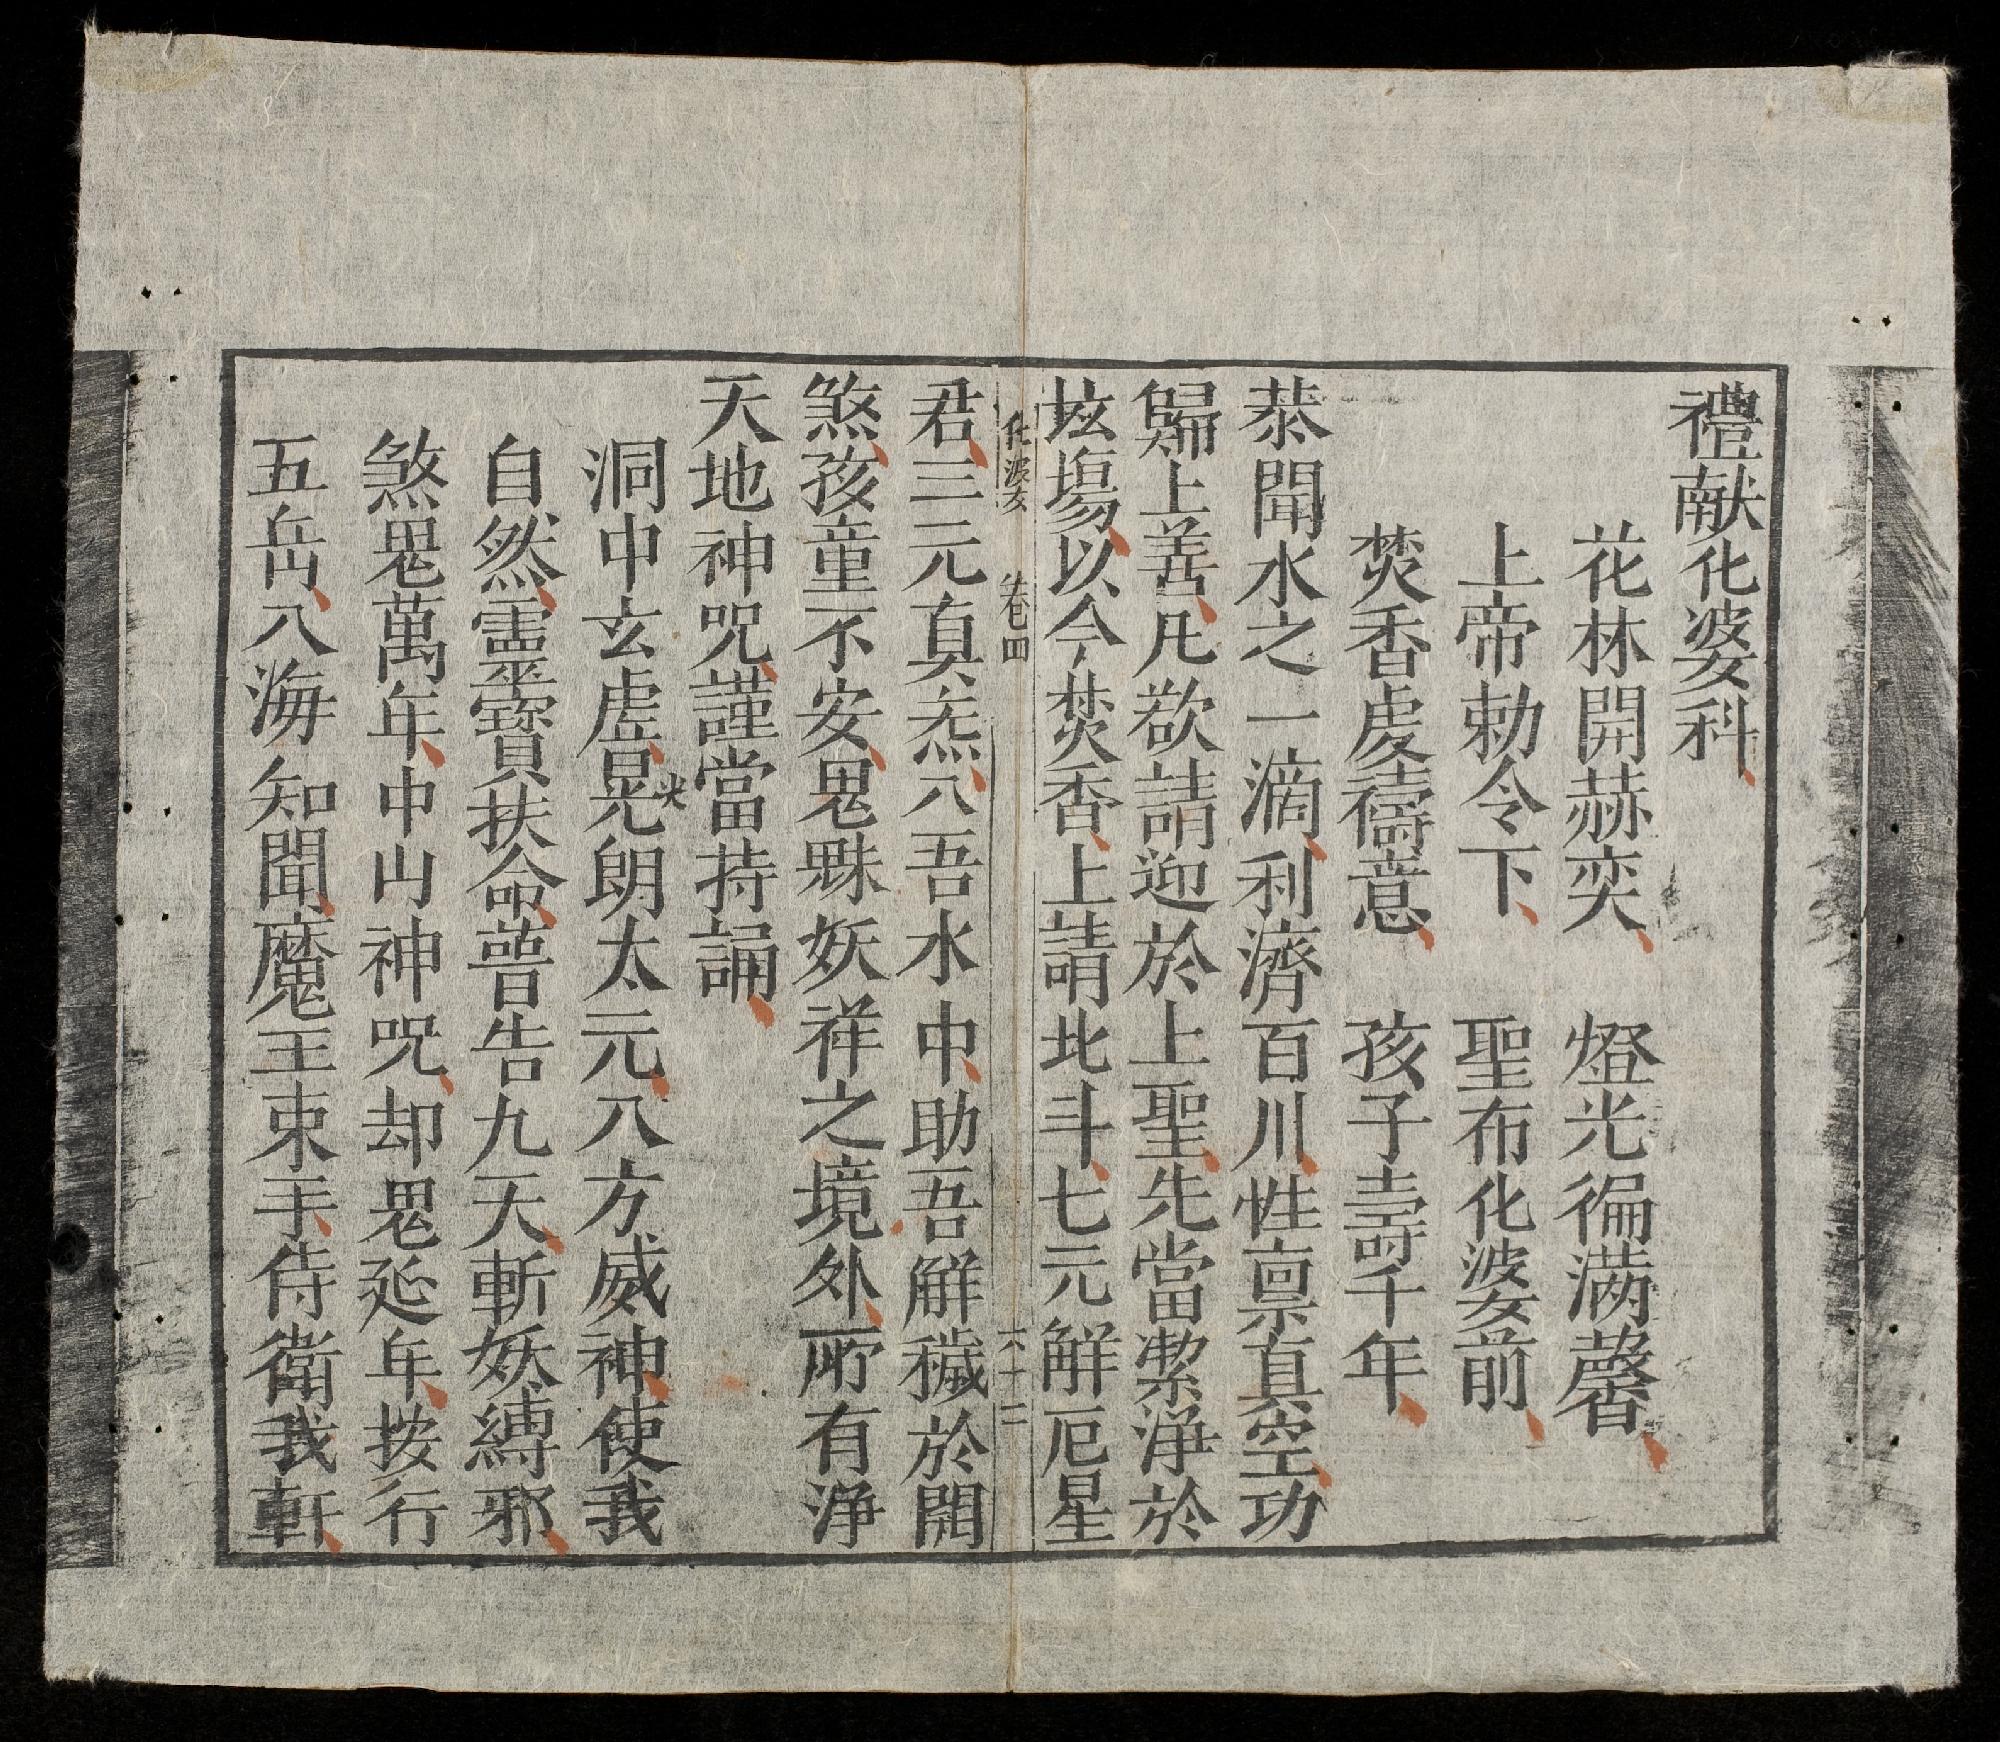 禮献化婆科
花林開赫奕　燈光徧滿馨
上帝勅令下　聖布化婆前
焚香虔禱意　孩子壽千年
恭聞水之一滴利濟百川性禀真空功
歸上善凡欲請迎於上聖先當潔淨於
壇場以今焚香上請北斗七元解厄星
化婆 卷四 六十二
君三元真炁八吾水中助吾解穢於開
煞孩童不安鬼魅妖祥之境外所有淨
天地神咒謹當持誦
洞中玄虛晃朗太元八方威神使我
自然靈寶扶命普告九天斬妖縛邪
煞鬼萬年中山神咒却鬼延年按行
五岳八海知聞魔王束手侍衛我軒